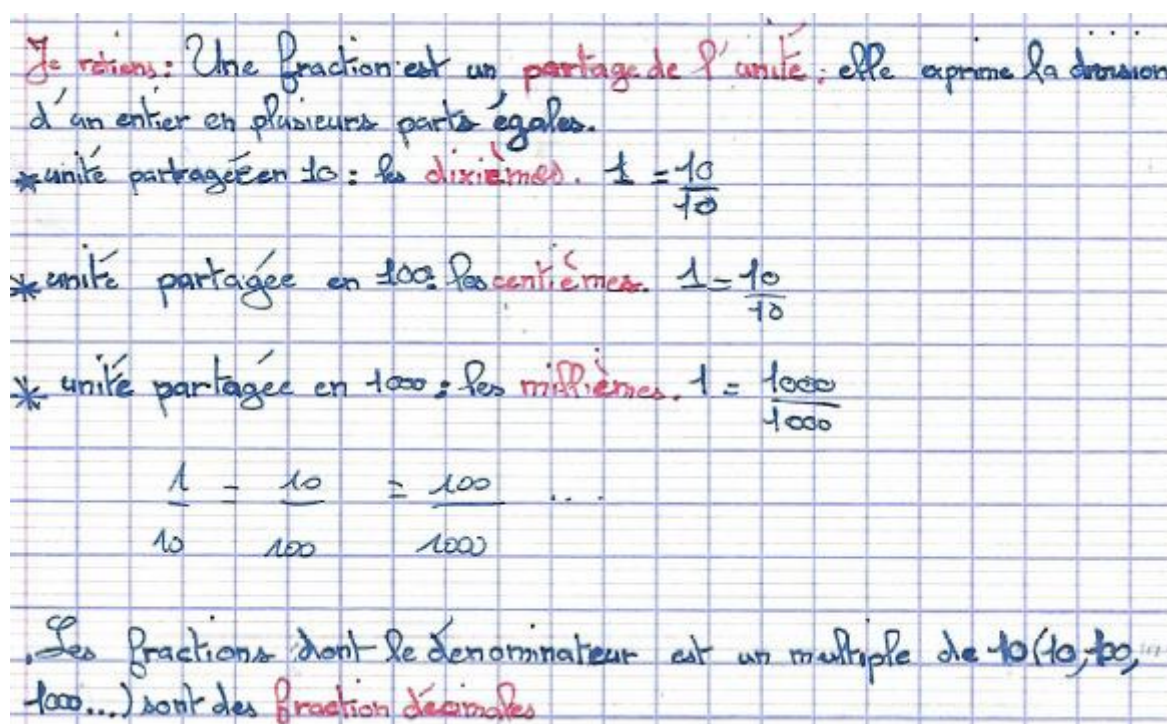 Je retiens : Une fraction est un partage de l'unité ; elle exprime la division
d'un entier en plusieurs parts égales.
* unité partragée en 10 : les dixièmes. 1 = 10/10
* unité partagée en 100 : les centièmes. 1 = 10/10
* unité partagée en 1000 : les millièmes. 1 = 1000/1000
1/10 = 10/100 = 100/1000 ...
. Les fractions dont le dénominateur est un multiple de 10 (10, 100,
1000...) sont des fraction décimales